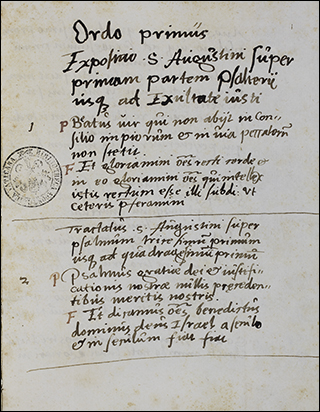 Ordo primus
Expositio S. Augustini super
primam partem Psalterij
usq ad Exultate iusti
1 P Beatus uir qui non abijt in con-
silio impiorum et in uia peccatorum
non stetit.
F Et gloriamini oēs recti corde et
in eo gloriamini oēs qui intellex
istis rectum esse illi subdi ut
ceteris
Tractatus S. Augustini super
psalmum tricesimum primum
usq ad quadragesimum primum
2 P Psalmus gratiae dei et iustifi-
cationis nostrae nullis preceden-
tibus meritis nostris.
F Et dicamus oēs benedictus
dominus deus Israel a seculo
et in seculum fiat fiat